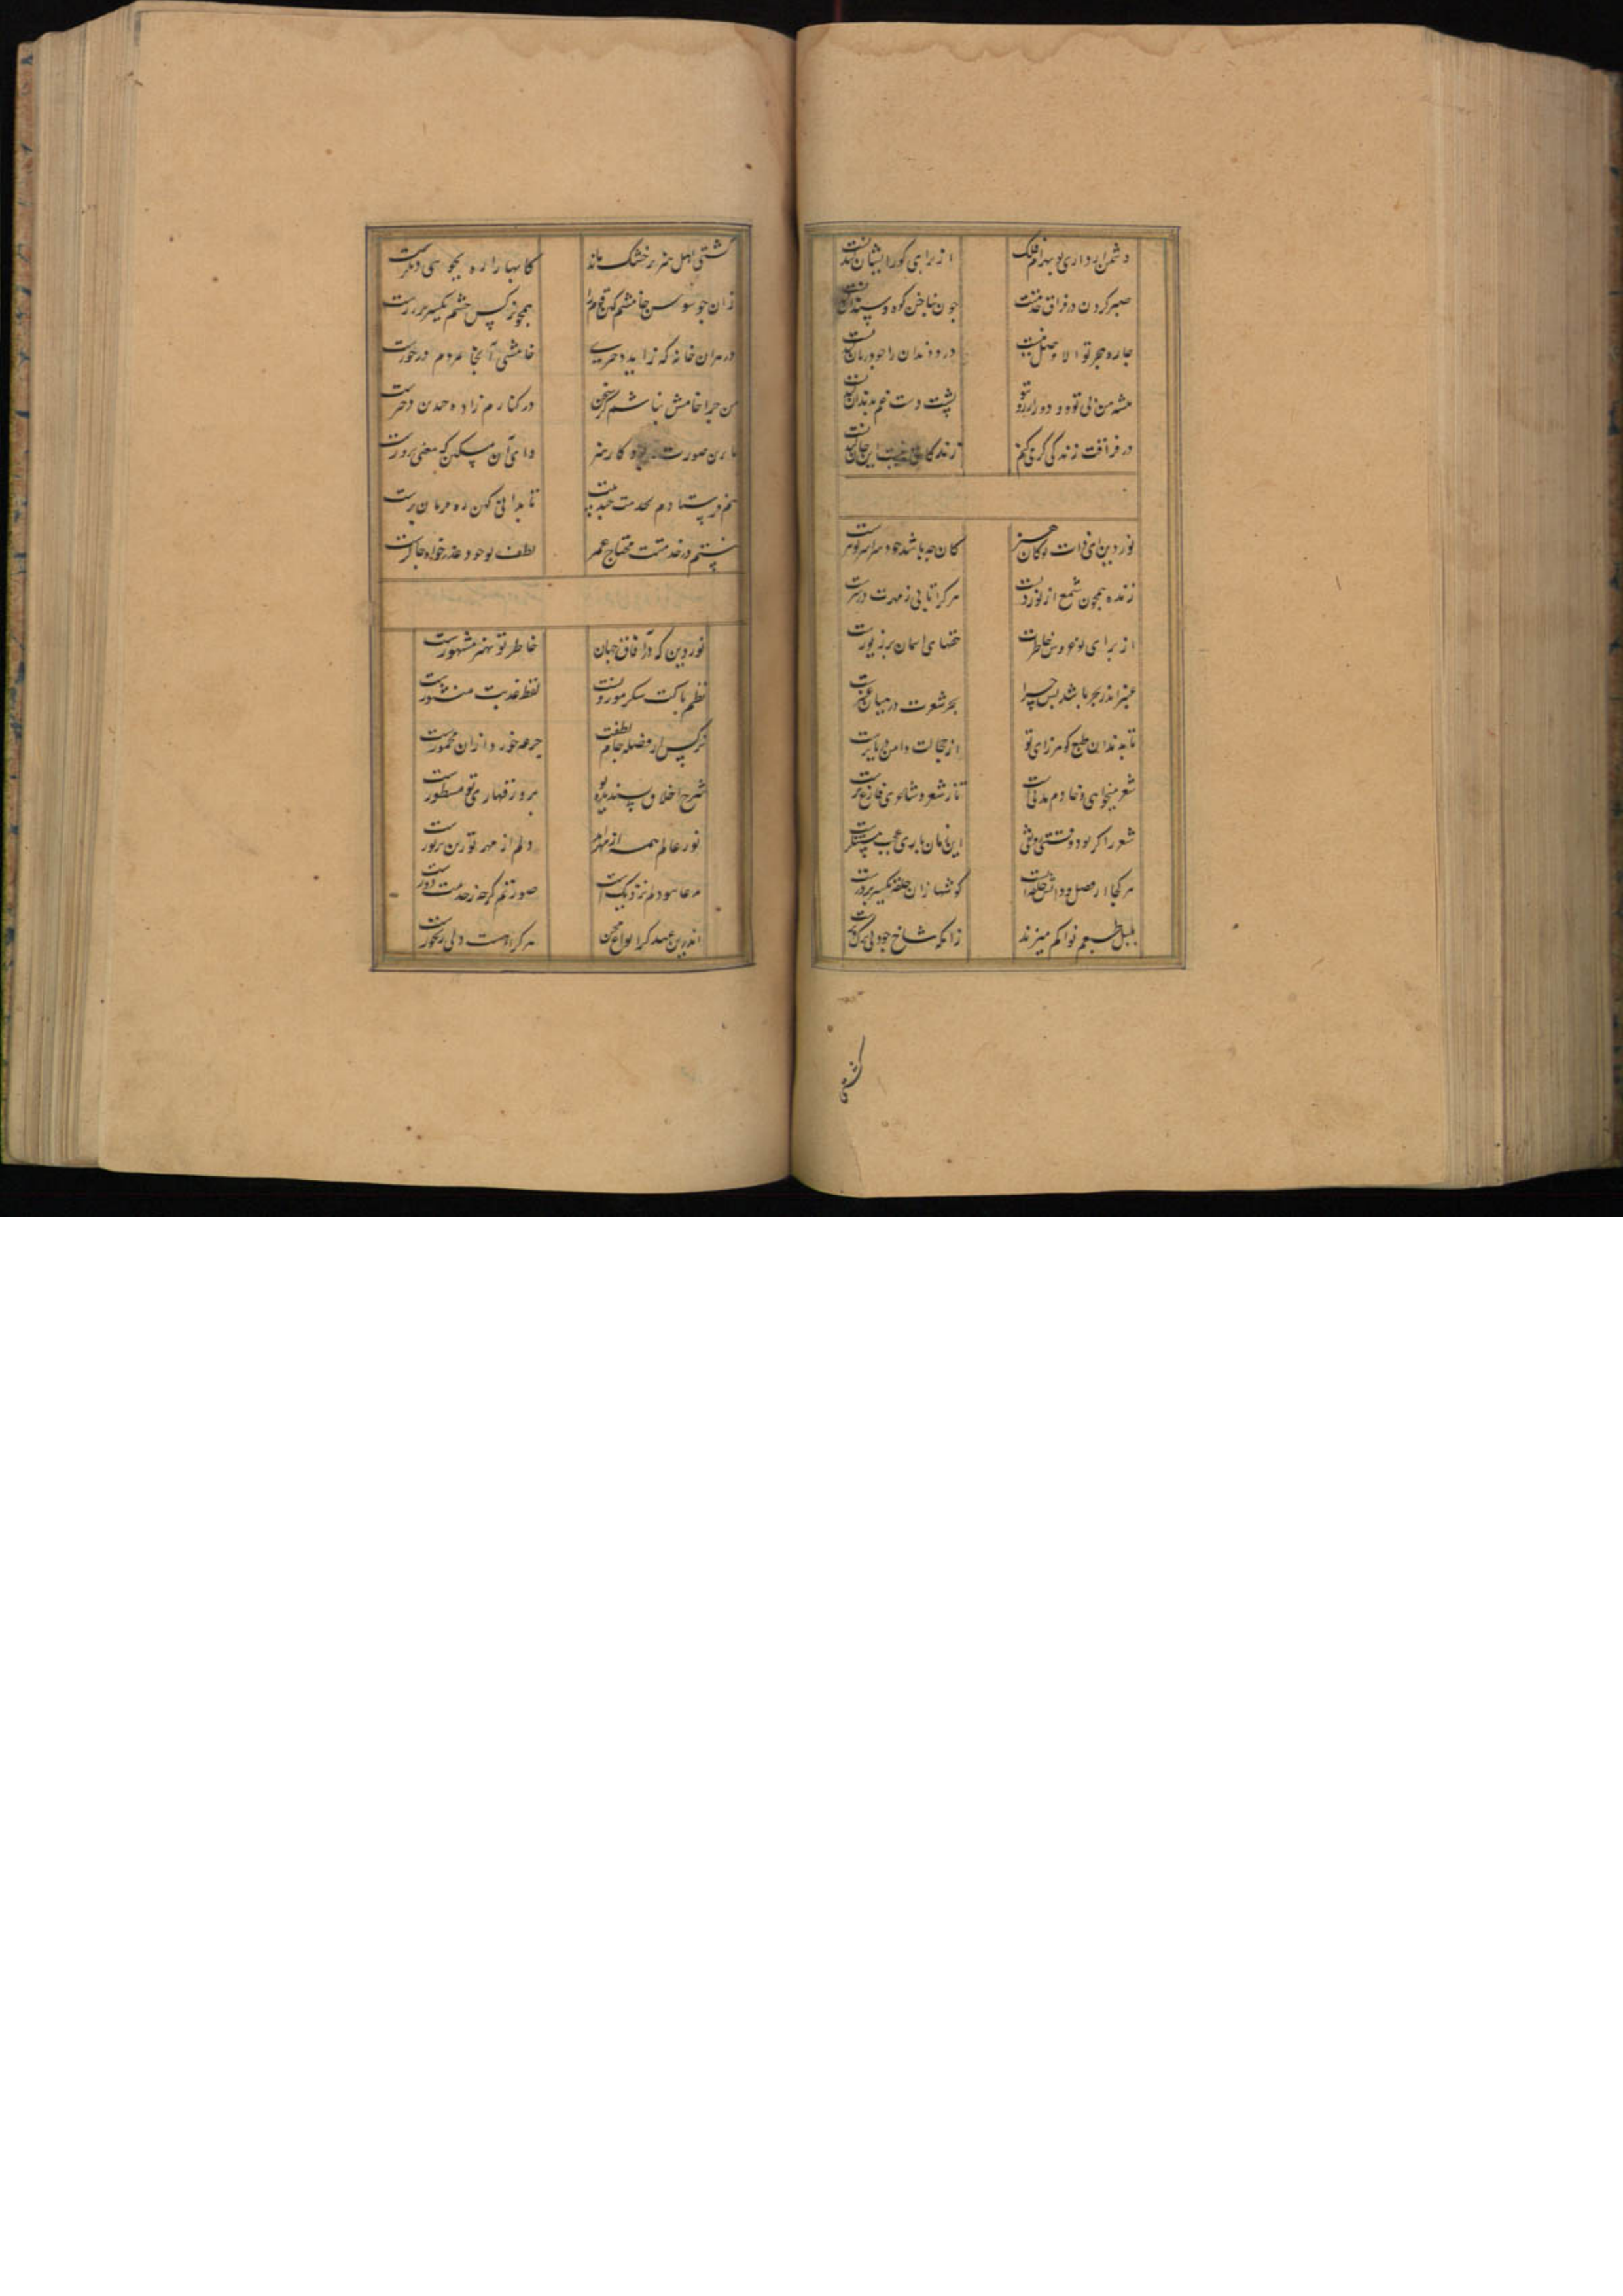 دشمن ار داری تو بهرام فلک از برای کور ایشان کند
صبر کردن در فراق خدمتت چون بناخن کوه و سندان کندنست
چاره هجر تو الا وصل نیست درد دندان را خود درمان کندنست
پشت دست غم بدندان کندنست
در فراقت زندگی گر می کنم زندگانی نیست این جان کندنست
نور دین ای ذات تو کان هنر کان چه باشد خود سراسر گوهرست
زنده همچون شمع از نور دلست هر کرا تابی ز مهرت در سرست
از برای نوعروس خاطرت تختهای آسمان پر زیورست
عنبر اندر بحر باشد پس چرا بحر شعرت در میان عنبرست
تا بدید آن طبع گوهر زای تو از خجالت دامن دریا ترست
شعر میخواهی و خادم مدتیست تا ز شعر و شاعری فارغ ترست
شعر را گر بود وقتی رونقی این زمان باری عجب مستنکرست
هر کجا از فضل و دانش حلقه ایست گوشها زان حلقه یکسر بر درست
بلبل طبعم نوا کم میزند زانکه شاخ جود بی برگ و برست
کشتی
کشتی اهل هنر بر خشک ماند کابها را ره بجوهای دگرست
زان چو سوسن خامشم کین قوم را همچو نرگس چشم یکسر بر زرست
در هر آن خانه که زاید دختری خامشی آنجا بمردم درخورست
من چرا خامش نباشم کز سخن در کنارم زاده چندین دخترست
با چنین صورت کار هنر وای آن مسکین که معنی پرورست
هم فرستادم بخدمت چند بیت تا بدانی کین رهی فرمان برست
نیستم در خدمتت محتاج عذر لطف تو خود عذرخواه چاکرست
نور دین که در آفاق جهان خاطر تو بهنر مشهورست
نظم پاکت شکر موزونست لفظ عذبت منثورست
نرگس از فضله جام لطفت جرعه خورد از آن مخمورست
شرح اخلاق پسندیده تو بر ورقهای تو مسطورست
نور عالم همه از مهر آمد دلم از مهر تو زین پر نورست
مدعا سوی دلم نزدیکست صورتم گرچه ز خدمت دورست
اندرین عهد که انواع محن هر کرا هست دلی رنجورست